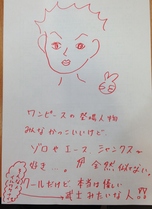 ワンピースの登場人物
みんなかっこいいけど
ゾロやエース シャンクスが
好き…。
全然似てない。
クールだけど 本当は優しい
武士みたいな人